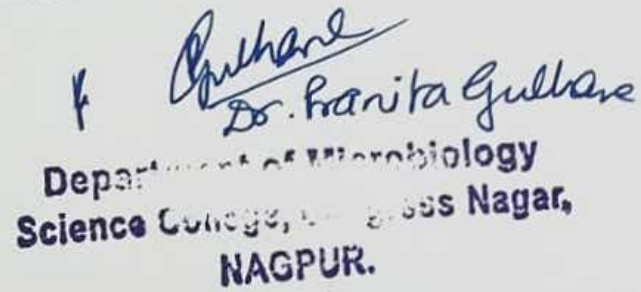 Gulhane
Dr. Pranita Gulhane
Department of Microbiology
Science College, Congress Nagar,
NAGPUR.